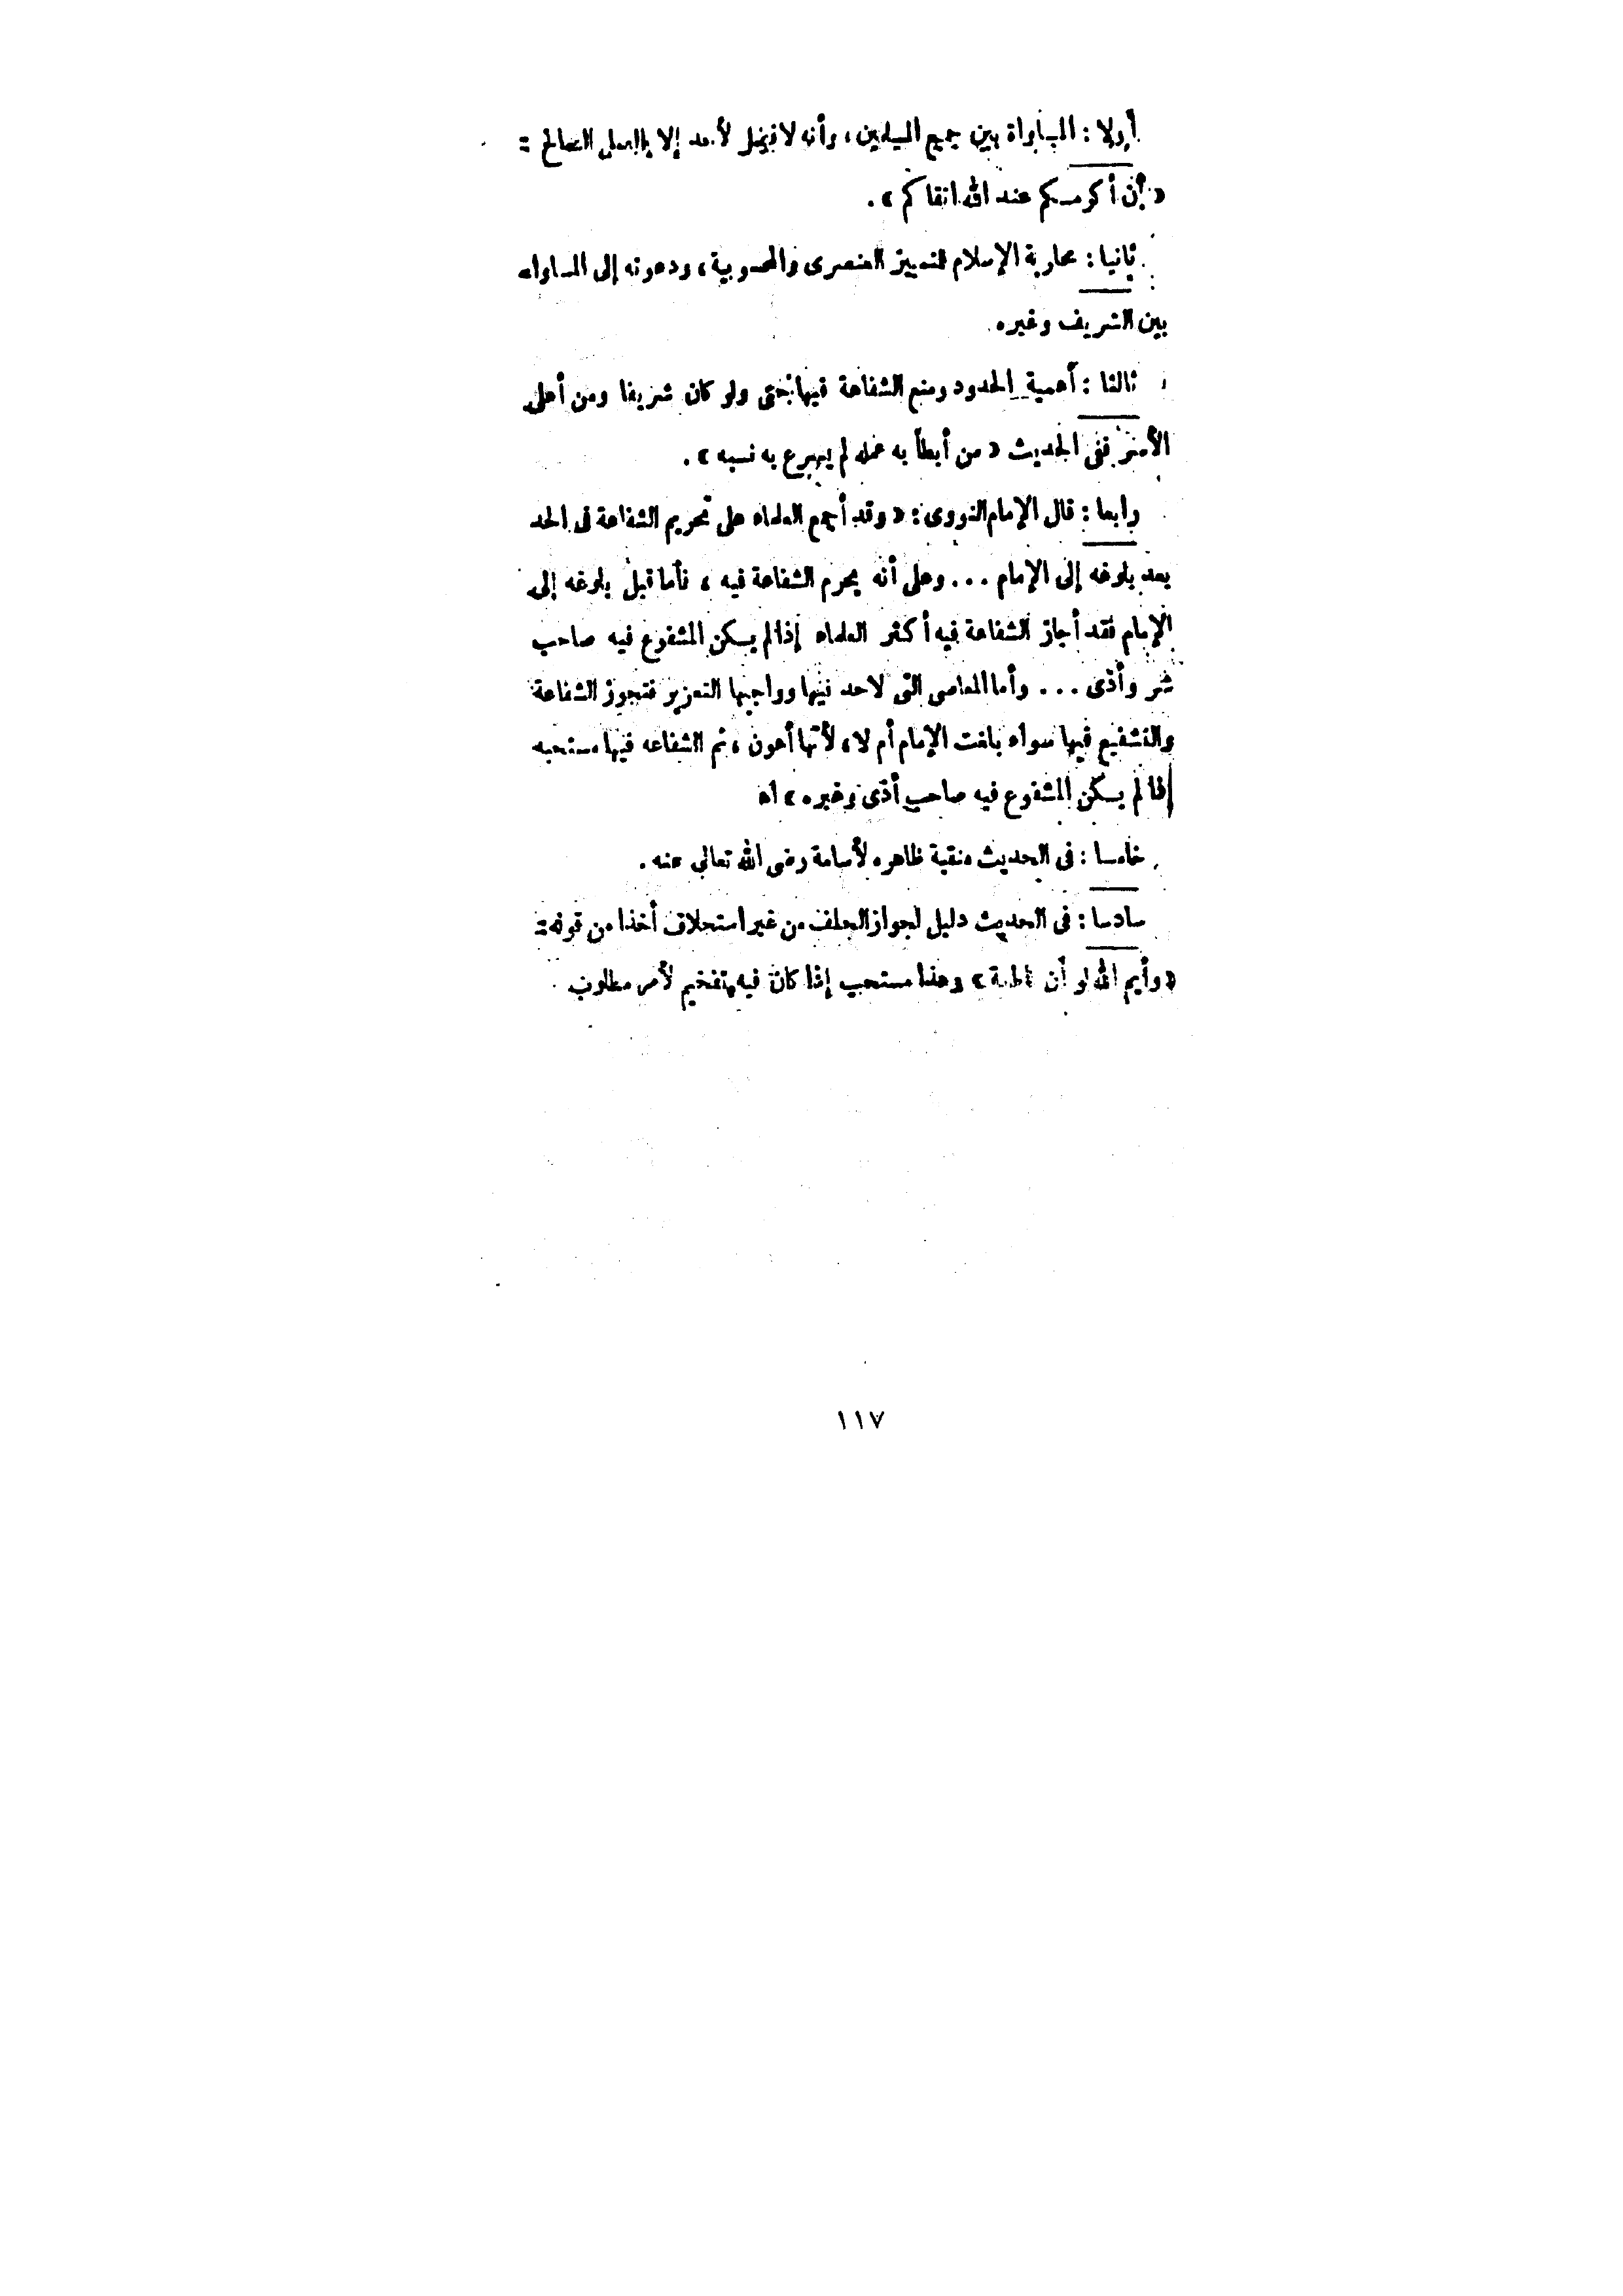 أولا : المساواة بين جميع المسلمين ، وأنه لا فضل لأحد إلا بالعمل الصالح :
« إن أكرمكم عند الله اتقاكم » .
ثانيا : محاربة الإسلام للتمييز العنصرى والمحسوبية ، ودعوته إلى المساواه
بين الشريف وغيره .
ثالثا : أهمية الحدود ومنع الشفاعة فيها حتى ولو كان شريفا ومن أهل
ففى الحديث « من أبطأ به عمله لم يسرع به نسبه » .
رابعا : قال الإمام النووى : « وقد أجمع العلماء على تحريم الشفاعة فى الحد
بعد بلوغه إلى الإمام ... وعلى أنه يحرم الشفاعة فيه ، فأما قبل بلوغه إلى
الإمام فقد أجاز الشفاعة فيه أكثر العلماء إذا لم يكن المشفوع فيه صاحب
شر وأذى ... وأما المعاصى التى لاحد فيها وواجبها التعزير فتجوز الشفاعة
والتشفيع فيها سواء بلغت الإمام أم لا ، لأنها أهون ، ثم الشفاعه فيها مستحبه
إذا لم يكن المشفوع فيه صاحب أذى وغيره » اه
خامسا : فى الحديث منقبة ظاهره لأسامة رضى الله تعالى عنه .
سادسا : فى الحديث دليل لجواز الحلف من غير استحلاف أخذا من قوله :
« وأيم الله لو أن فاطمة » وهذا مستحب إذا كان فيه تفخيم لأمر مطلوب
١١٧